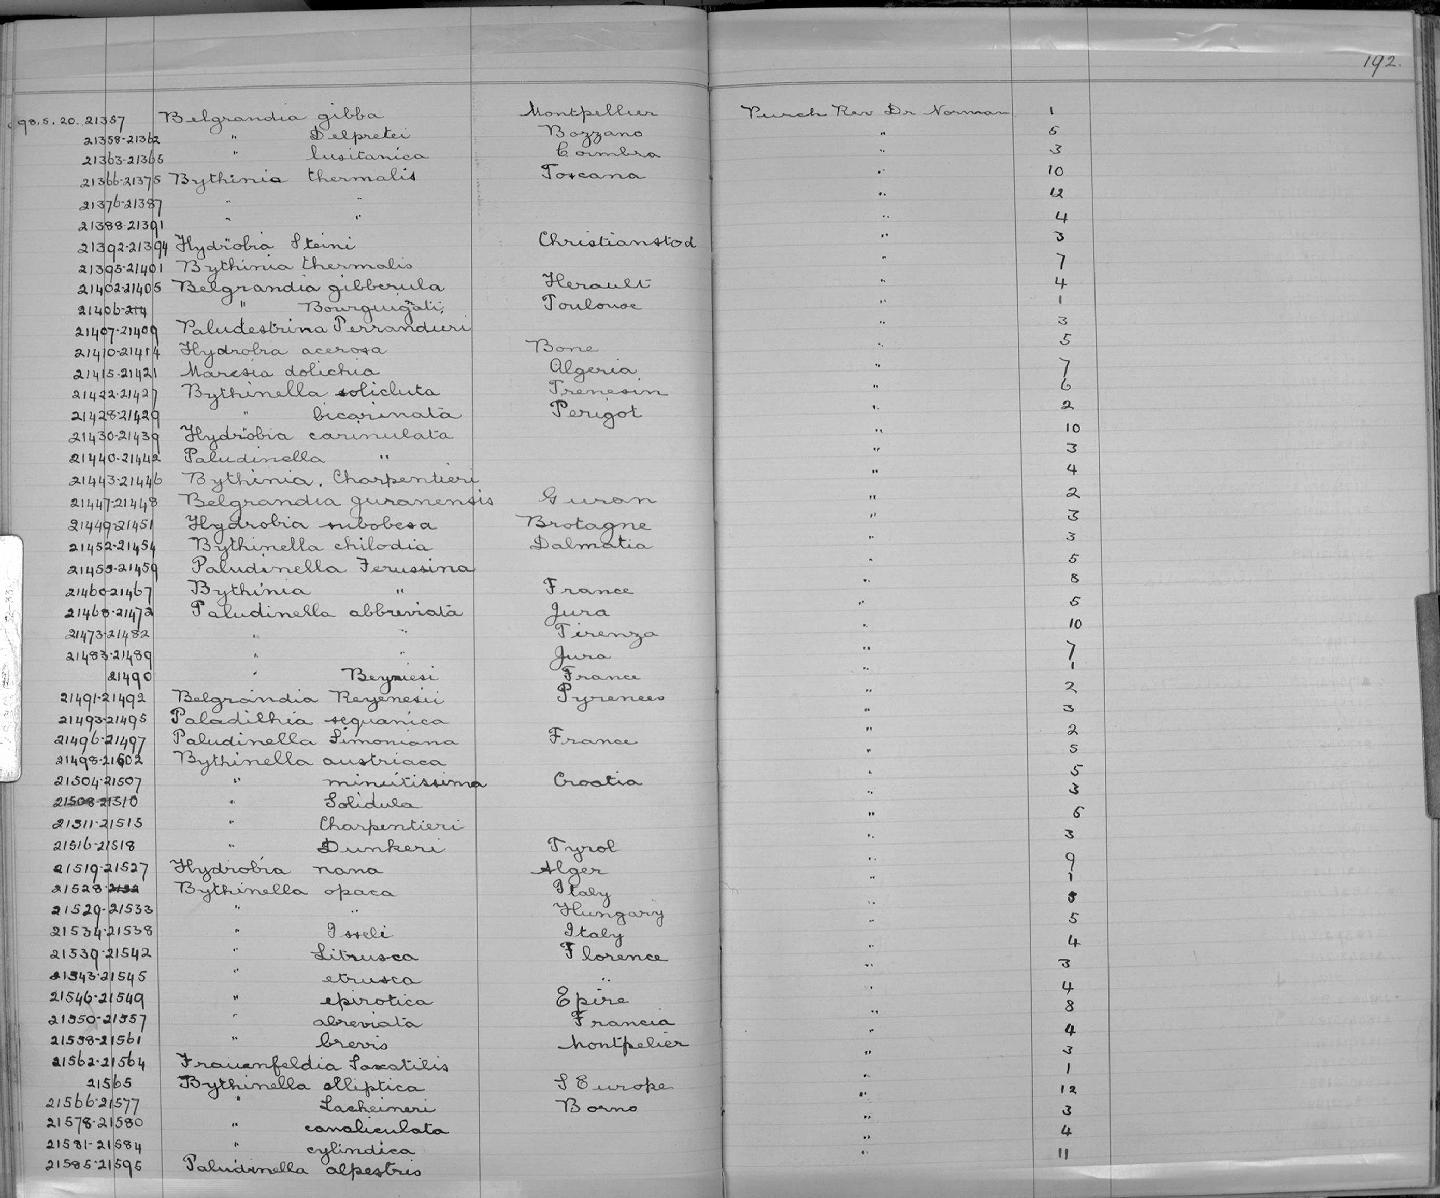 192.
98.5.20.21357 Belgrandia gibba Montpellier Purch Rev Dr Norman 1
21358-21362 " Delpretei Bozzano " 5
21363-21365 " lusitanica Coimbra " 3
21366-21375 Bythinia thermalis Toscana " 10
21376-21387 " " " 12
21388-21391 " " " 4
21392-21394 Hydrobia Steini Christianstod " 3
21395-21401 Bythinia thermalis " 7
21402-21405 Belgrandia gibberula Herault " 4
21406 " Toulouse " 1
21407-21409 Paludestrina Perrandieri " 3
21410-21414 Hydrobia acerosa Bone " 5
21415-21421 Maresia dolichia Algeria " 7
21422-21427 Bythinella solicluta Trenesin " 6
21428-21429 " bicarinata Perigot " 2
21430-21439 Hydrobia carinulata " 10
21440-21442 Paludinella " " 3
21443-21446 Bythinia. Charpentieri " 4
21447-21448 Belgrandia guranensis Guran " 2
21449-21451 Hydrobia subobesa Brotagne " 3
21452-21454 Bythinella chilodia Dalmatia " 3
21455-21459 Paludinella Ferussina " 5
21460-21467 Bythinia " France " 8
21468-21472 Paludinella abbreviata Jura " 5
21473-21482 " " Firenza " 10
21483-21489 " " Jura " 7
21490 " France " 1
21491-21492 Belgrandia Reyenesii Pyrenees " 2
21493-21495 Paladilhia sequanica " 3
21496-21497 Paludinella Simoniana France " 2
21498-21502 Bythinella austriaca " 5
21504-21507 " minutissima Croatia " 5
21508-21510 " Solidula " 3
21511-21515 " Charpentieri " 5
21516-21518 " Dunkeri Tyrol " 3
21519-21527 Hydrobia nana Alger " 9
21528 Bythinella opaca Italy " 1
21529-21533 " " Hungary " 5
21534-21538 " Isseli Italy " 5
21539-21542 " Litrusca Florence " 4
21543-21545 " etrusca " " 3
21546-21549 " epirotica Epire " 4
21550-21557 " abreviata Francia " 8
21558-21561 " brevis Montpelier " 4
21562-21564 Frauenfeldia Saxatilis " 3
21565 Bythinella elliptica S Europe " 1
21566-21577 " Lacheineri Borno " 12
21578-21580 " canaliculata " 3
21581-21584 " cylindica " 4
21585-21595 Paludinella alpestris " 11